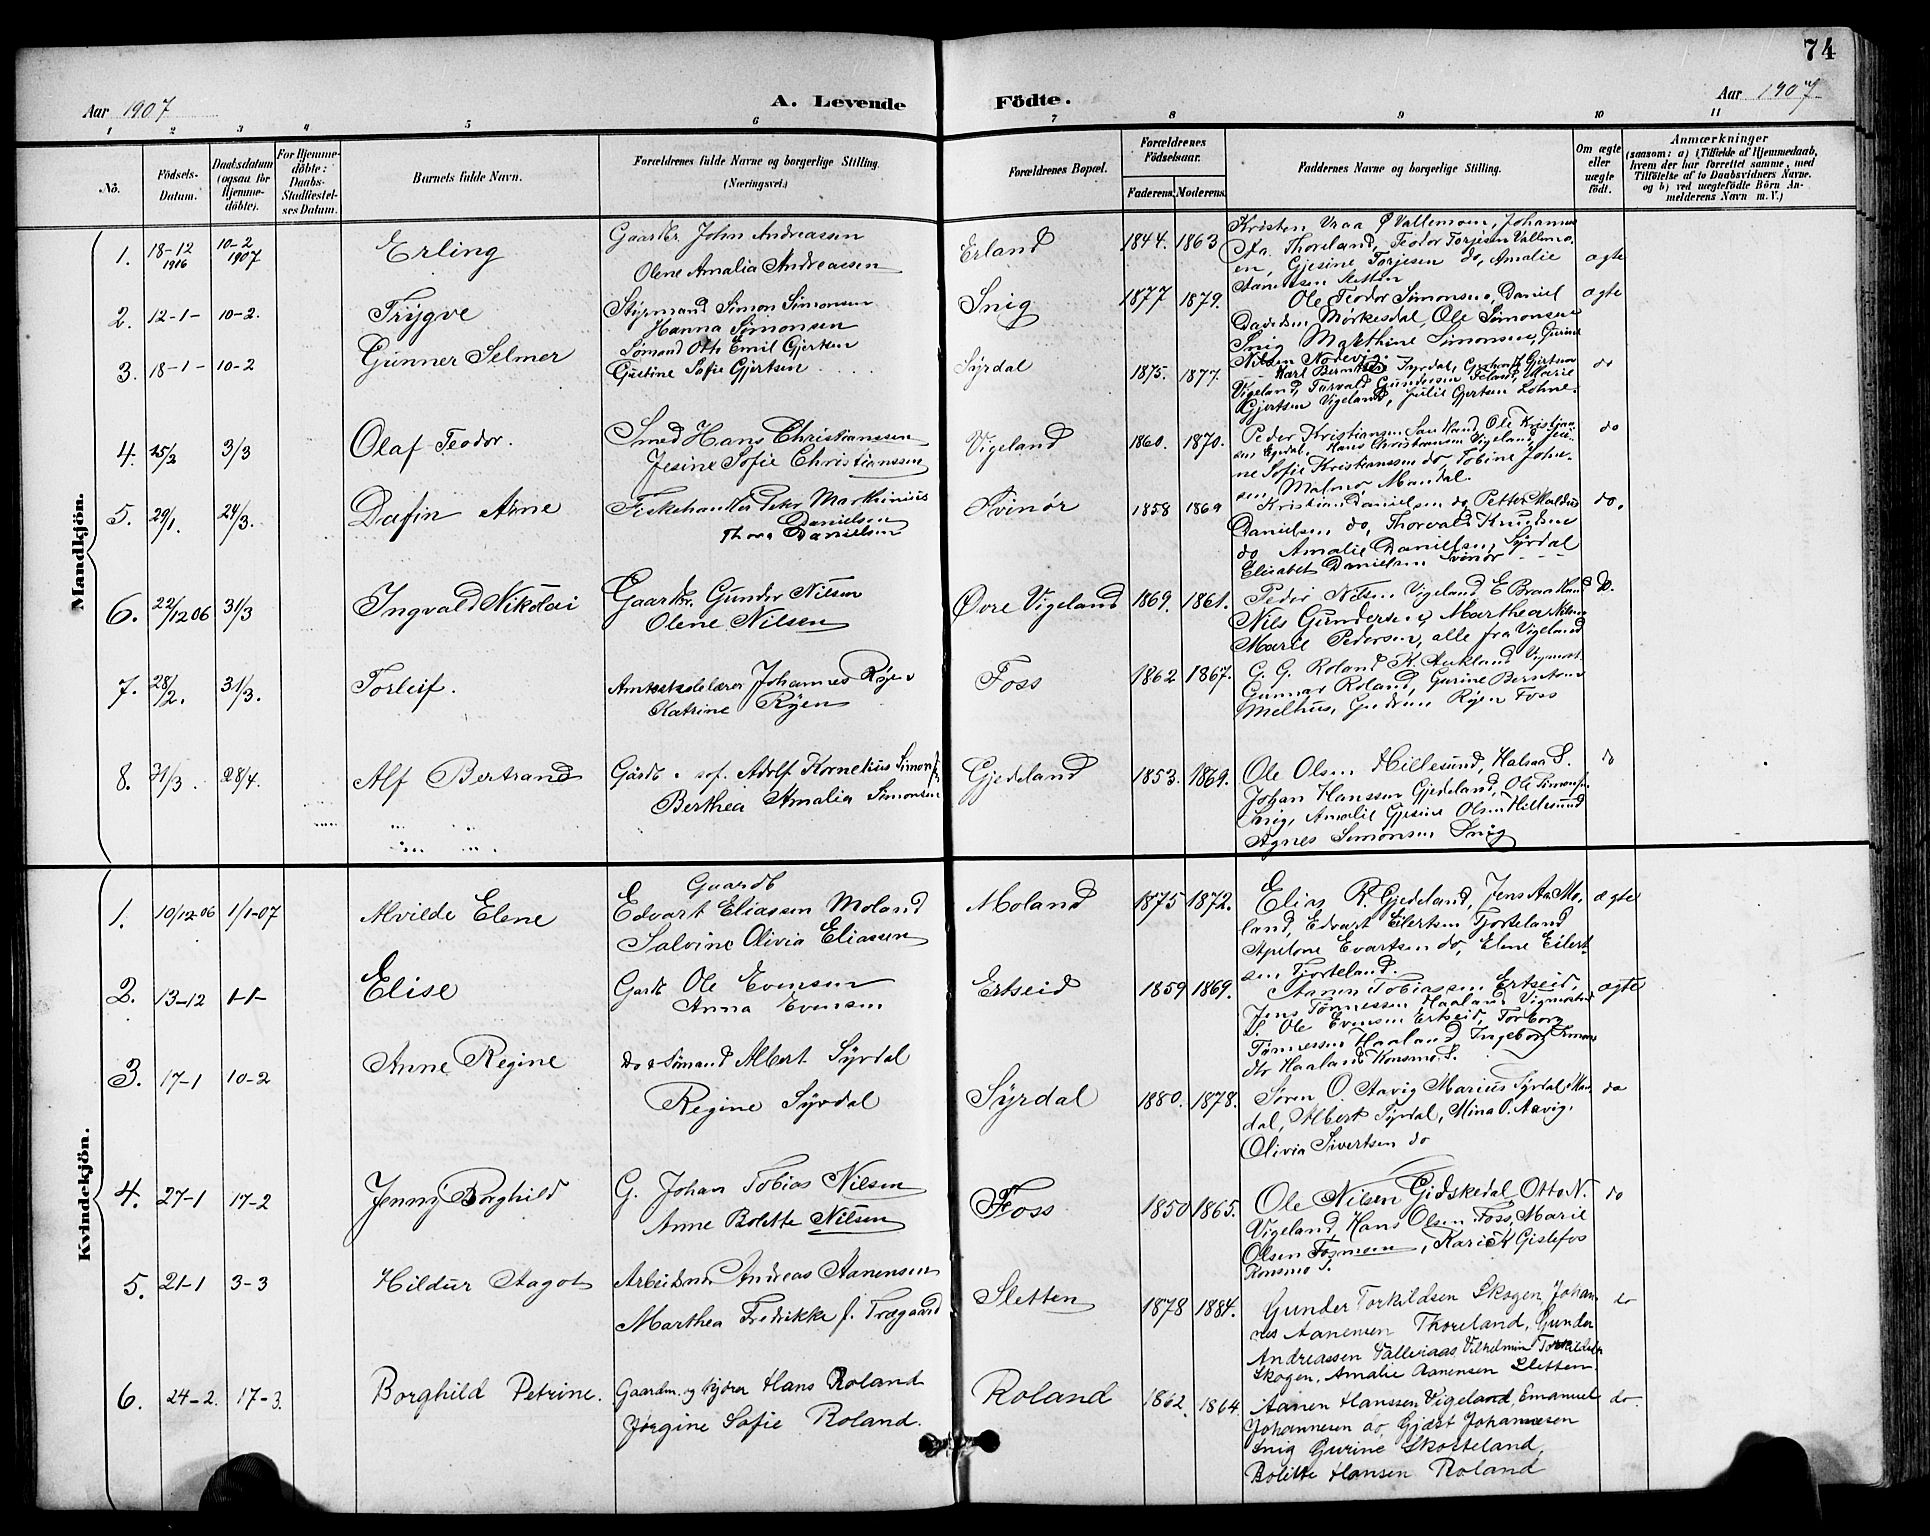 74
Aar 1907
A. Levende Födte.
Aar 1907
1 2 3 4 5 6 7 8 9 10 11
No.
Födsels-Datum.
Daabsdatum (ogsaa for Hjemme-döbte).
For Hjemme-döbte: Daabs-Stadfæstel-ses Datum.
Barnets fulde Navn.
Forældrenes fulde Navne og borgerlige Stilling. (Næringsvei.)
Forældrenes Bopæl.
Forældrenes Födselsaar.
Faderens. Moderens.
Faddernes Navne og borgerlige Stilling.
Om ægte eller uægte födt.
Anmærkninger
(saasom: a) i Tilfælde af Hjemmedaab, hvem der har forrettet samme, med Tilföielse af to Daabsvidners Navne. og b) ved uægtefödte Börn An-melderens Navn m. V.)
Mandkjön.
1. 18-12 1916 10-2 1907 Erling
Gaardbr. John Andreassen
Olene Amalia Andreassen
Erland 1844. 1863
Kristen Vraa Ø Vallemoen, Johannes
Aa. Thoreland, Teodor Torjesen Vallemo-
en, Gjesine Torjesen do, Amalie
Aanensen Sletten
ægte
2. 12-1- 10-2. Trygve
Styrmand Simon Simonsen
Hanna Simonsen
Snig 1877 1879.
Ole Teodor Simonsen, Daniel
Davidsen Mörkesdal, Ole Simonsen
Snig Mathine Simonsen, Gurine
Nilsen Nodevig.
ægte
3. 18-1- 10-2 Gunner Selmer
Sömand Otto Emil Gjertsen
Gustine Sofie Gjertsen
Syrdal 1875. 1877.
Karl Berntsen Syrdal, Gjertsen
Vigeland, Torvald Gundersen Marie
Gjertsen Vigeland, Julie Gjertsen Lohne
do
4. 25/2 3/3 Olaf Teodor.
Smed Hans Christianssen
Jesine Sofie Christianssen
Vigeland 1860. 1870.
Peder Kristiansen Ole Kristian
sen Hans Christiansen Vigeland, Jesi-
ne Sofie Kristianssen do, Tobine John-
sen, Malmø Mandal.
do
5. 29/1. 24/3. Dafin Arne
Fiskehandler Peter Marthinius
Danielsen
Thora Danielsen
Svinör 1858 1869
Kristian Danielsen do, Petter
Danielsen do, Thorvald Knudsen
do Amalie Danielsen, Syrdal
Elisabet Danielsen Svinör
do.
6. 22/12 06 31/3 Ingvald Nikolai
Gaardbr. Gunder Nilsen
Olene Nilsen
Øvre Vigeland 1869. 1861.
Peder Nilsen Vigeland E Braatland
Nils Gundersen, Marthea Nilsen
Marie Pedersen, alle fra Vigeland
D.
7. 28/2. 31/3. Torleif.
Amtsskolelærer Johannes Röyen
Katrine Röyen
Foss 1862 1867.
G. G. Roland K. Aukland Vigmost.
Gunnar Roland, Gurine Berntsen
Melhus, Gudrun Röyen Foss
8. 31/3. 28/4. Alf Bertrand
Gårdb. & sof. Adolf Kornelius Simons.
Berthea Amalia Simonsen
Gjedeland 1853. 1869.
Ole Olsen Hillesund, Halsaa S.
Johan Hanssen Gjedeland, Ole Simonsen
Snig, Amalie Gjesine Olsen Hillesund
Agnes Simonsen Snig
do
Kvindekjön.
1. 10/12 06 1/1-07 Alvilde Elene
Gaardb
Edvart Eliassen Moland
Salvine Olivia Eliassen
Moland 1875 1872.
Elias R. Gjedeland, Jens Aa. Mo-
land, Edvart Eilertsen Tjorteland
Apelone Evartsen do, Elene Eilert-
sen Tjorteland.
ægte
2. 13-12 1-1- Elise
Gardb Ole Evensen
Anna Evensen
Ertseid 1859 1869.
Aanen Tobiassen Ertseid,
Jens Tønnessen Haaland Vigmostad
S. Ole Evensen Ertseid, Torborg
Tønnessen Haaland Ingeborg
Haaland Konsmo S.
ægte
3. 17-1 10-2 Anne Regine
do & Sömand Albert Syrdal
Regine Syrdal
Syrdal 1880. 1878.
Sören O. Aavig Marius Syrdal Man-
dal, Albert Syrdal, Mina O. Aavig,
Olivia Sivertsen do
do
4. 27-1 17-2 Jenny Borghild
G. Johan Tobias Nilsen
Anne Bolette Nilsen
Foss 1850 1865.
Ole Nilsen Gidskedal, Otto N.
Vigeland, Hans Olsen Foss, Marie
Olsen Fosmoen, Kari K Gislefos
Konsmo S.
do
5. 21-1 3-3 Hildur Aagot
Arbeidsm Andreas Aanensen
Marthea Fredrikke f. Trægaard
Sletten 1878 1884.
Gunder Torkildsen Skogen, Johan-
nes Aanensen Thoreland, Gunder
Andreassen Valleviaas Vilhelmine Torkildsen
Skogen, Amalie Aanensen Sletten
do
6. 24-2. 17-3. Borghild Petrine.
Gaardm. og Hans Roland
Jörgine Sofie Roland.
Roland 1862. 1864.
Aanen Hanssen Vigeland, Emanuel
Johannesen do, Gjært Johannesen
Snig Gurine Skofteland,
Bolette Hansen Roland
do